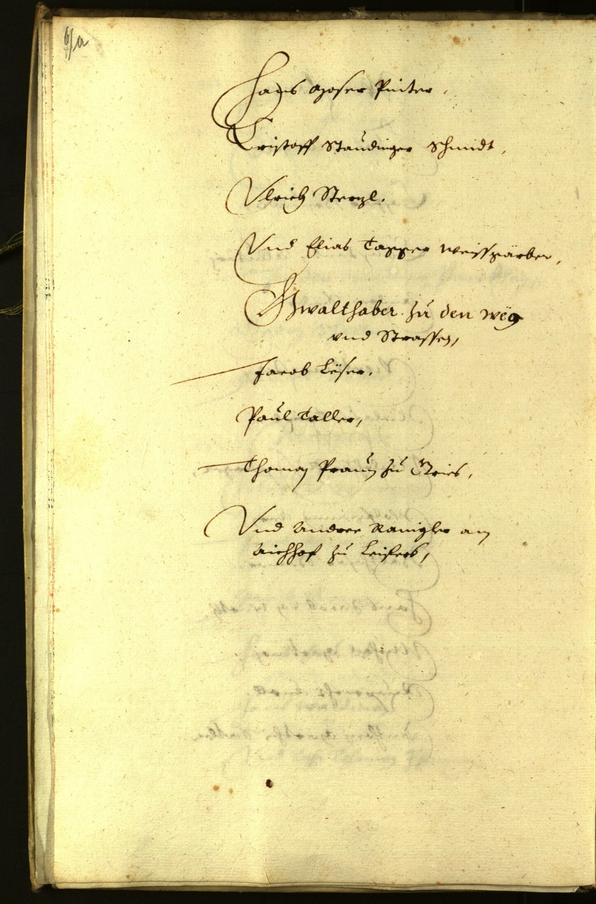 Hans Moser Pinter,
Cristoff Staudinger Schmidt,
Vlrich Sterzl.
Vnd Elias Tapper weissgärber,
Gwalthaber zu den weg
vnd Strassen,
Jacob Leser,
Paul Taller,
Thoman Praun zu Gries,
Vnd Andree Ranigler am
Aichhof zu Leifers,